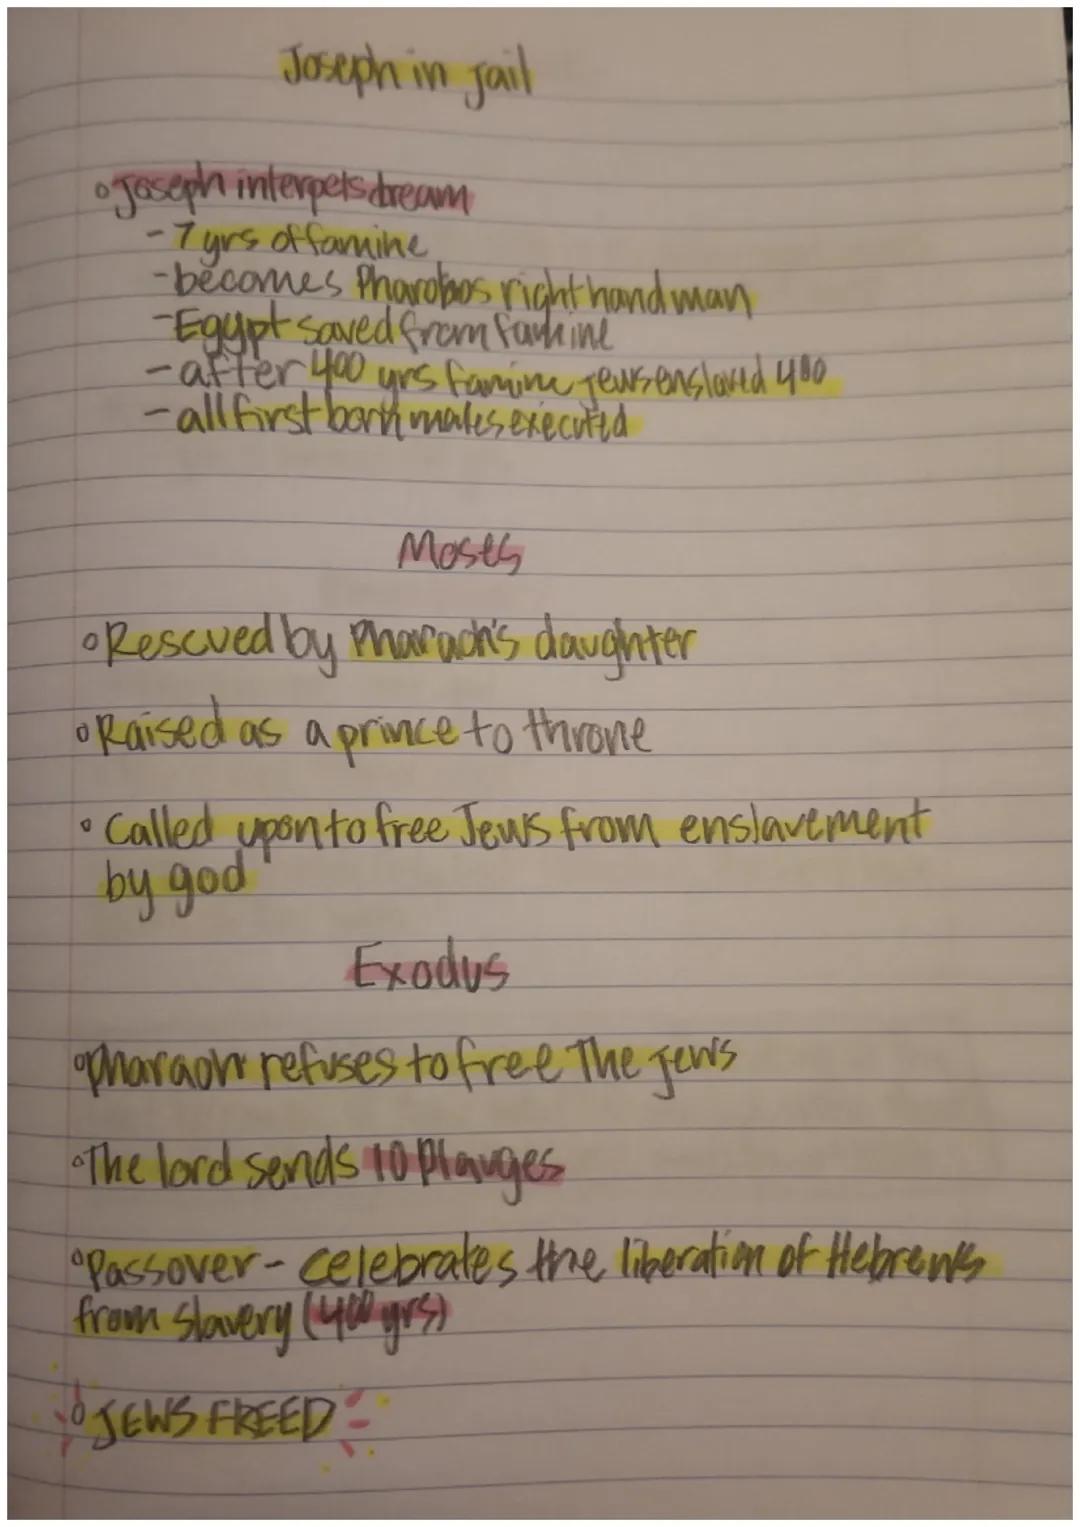 Joseph in jail
◦ Joseph interpets dream
- 7 yrs of famine
- becomes Pharobos right hand man
- Egypt saved from famine
- after 400 yrs famine jews enslaved 400
- all first born males executed
Moses
◦ Rescued by Pharaoh's daughter
◦ Raised as a prince to throne
◦ Called upon to free Jews from enslavement
by god
Exodus
◦ pharaoh refuses to free The jews
◦ The lord sends 10 Plauges
◦ Passover - celebrates the liberation of Hebrews
from slavery (400 yrs)
◦ JEWS FREED